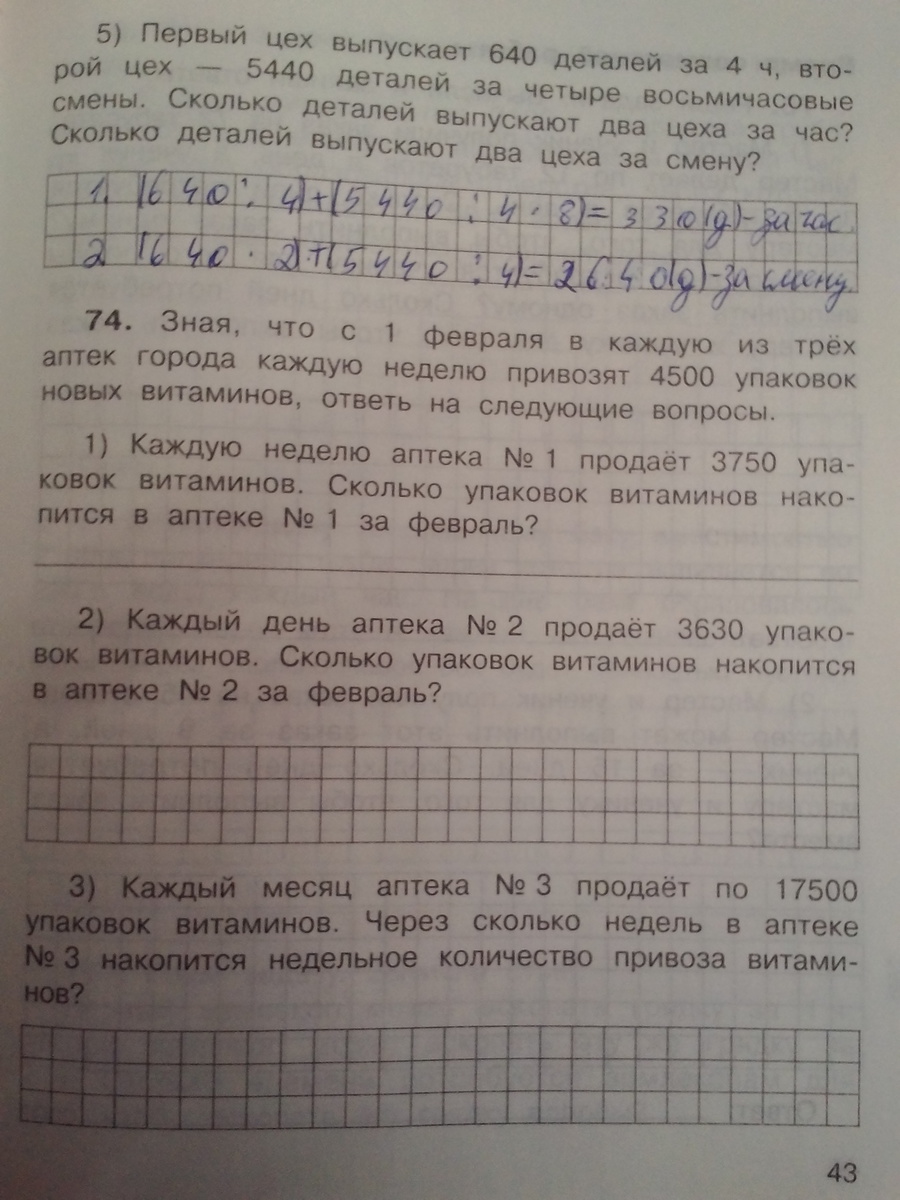 5) Первый цех выпускает 640 деталей за 4 ч, вто-
рой цех — 5440 деталей за четыре восьмичасовые
смены. Сколько деталей выпускают два цеха за час?
Сколько деталей выпускают два цеха за смену?
1. (640 : 4)+(5440 : 4 · 8)= 330(д)-за час.
2 (640 · 2)+(5440 : 4)= 2640(д)-за смену.
74. Зная, что с 1 февраля в каждую из трёх
аптек города каждую неделю привозят 4500 упаковок
новых витаминов, ответь на следующие вопросы.
1) Каждую неделю аптека № 1 продаёт 3750 упа-
ковок витаминов. Сколько упаковок витаминов нако-
пится в аптеке № 1 за февраль?
2) Каждый день аптека № 2 продаёт 3630 упако-
вок витаминов. Сколько упаковок витаминов накопится
в аптеке № 2 за февраль?
3) Каждый месяц аптека № 3 продаёт по 17500
упаковок витаминов. Через сколько недель в аптеке
№ 3 накопится недельное количество привоза витами-
нов?
43